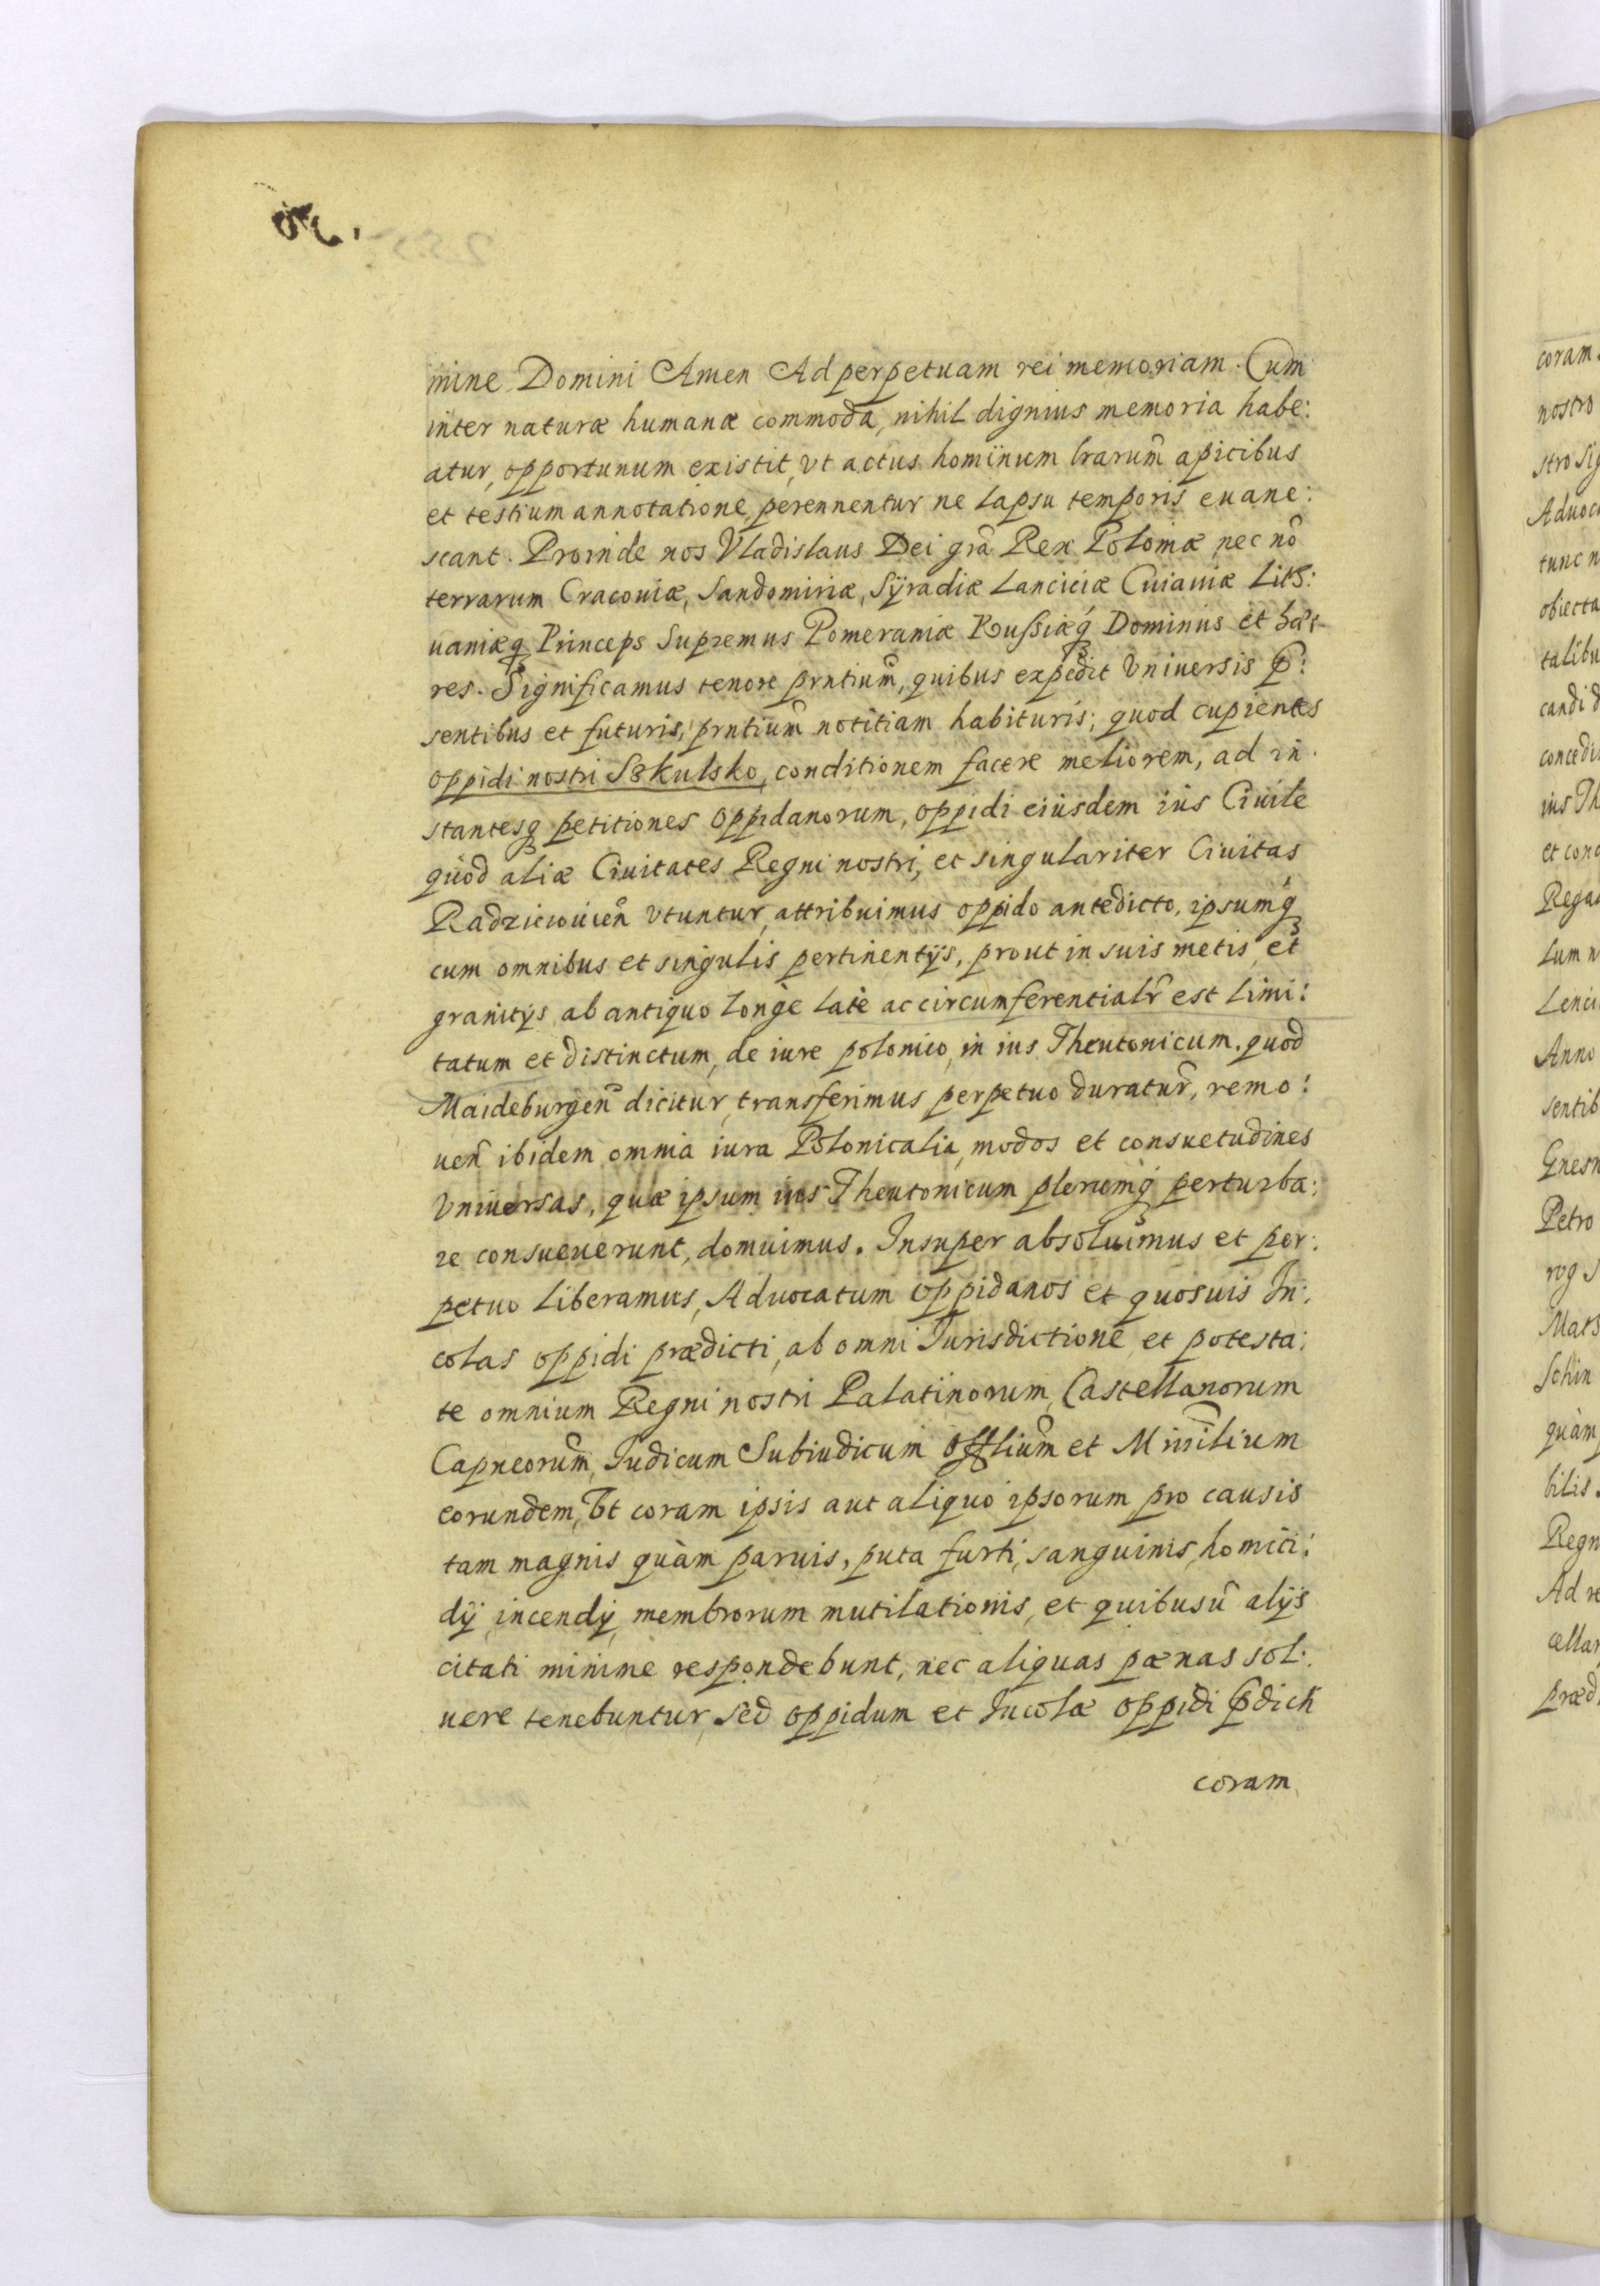 mine Domini Amen Ad perpetuam rei memoriam. Cum
inter naturæ humanæ commoda, nihil dignius memoria habe:
atur, opportunum existit, vt actus hominum lrarum̃ apicibus
et testium annotatione, perennentur ne lapsu temporis euane:
scant. Proinde nos Vladislaus Dei grã Rex Poloniæ, nec nõ
terrarum Cracouiæ, Sandomiriæ, Sÿradiæ Lanciciæ Cuiauiæ Lith:
uaniæq́ Princeps Supremus Pomeraniæ Russiæq́ Dominus et hæ:
res. Significamus tenore prntium̃, quibus expedit vniuersis p̃:
sentibus et futuris, prntium̃ notitiam habituris; quod cupientes
oppidi nostri Sskulsko, conditionem facere meliorem, ad in
stantesq́ petitiones oppidanorum, oppidi eiusdem ius Ciuile
quod aliæ Ciuitates Regni nostri, et singulariter Ciuitas
Radzieiouien̄ vtuntur, attribuimus oppido antedicto, ipsumq́
cum omnibus et singulis pertinentÿs, prout in suis metis et
granitÿs ab antiquo longè latè ac circumferentialr̃ est limi:
tatum et distinctum, de iure polonico, in ius Theutonicum. quod
Maideburgen̄ dicitur, transferimus perpetuo duratur̃, remo:
uen̄ ibidem omnia iura Polonicalia, modos et consuetudines
vniuersas, quæ ipsum ius Theutonicum plerumq́ perturba:
re consueuerunt, domuimus. Insuper absoluimus et per:
petuo liberamus, Aduocatum oppidanos et quosuis In:
colas oppidi prædicti, ab omni Iurisdictione, et potesta:
te omnium Regni nostri Palatinorum, Castellanorum
Capneorum̃, Iudicum Subiudicum Offlium̃ et Minilium
eorundem, Vt coram ipsis aut aliquo ipsorum pro causis
tam magnis quàm paruis, puta furti, sanguinis, homici:
dÿ, incendÿ, membrorum mutilationis, et quibusũ alÿs
citati minime respondebunt, nec aliquas pœnas sol:
uere tenebuntur, Sed oppidum et Incolæ oppidi p̃dicti
coram